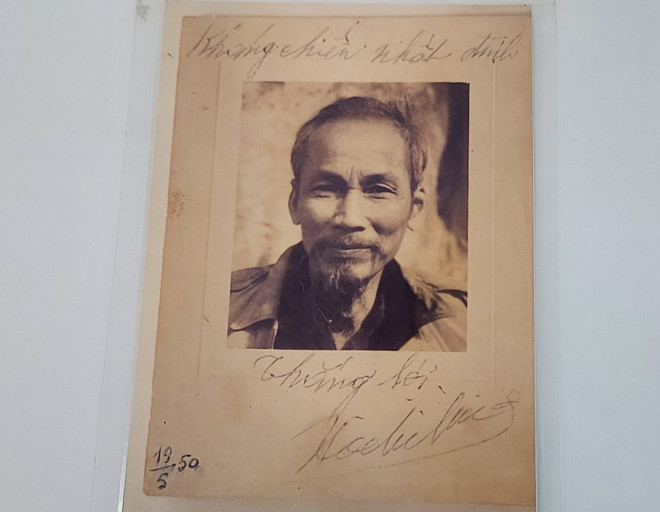 Kháng chiến nhất định
thắng lợi.
Hồ Chí Minh
19/5 50